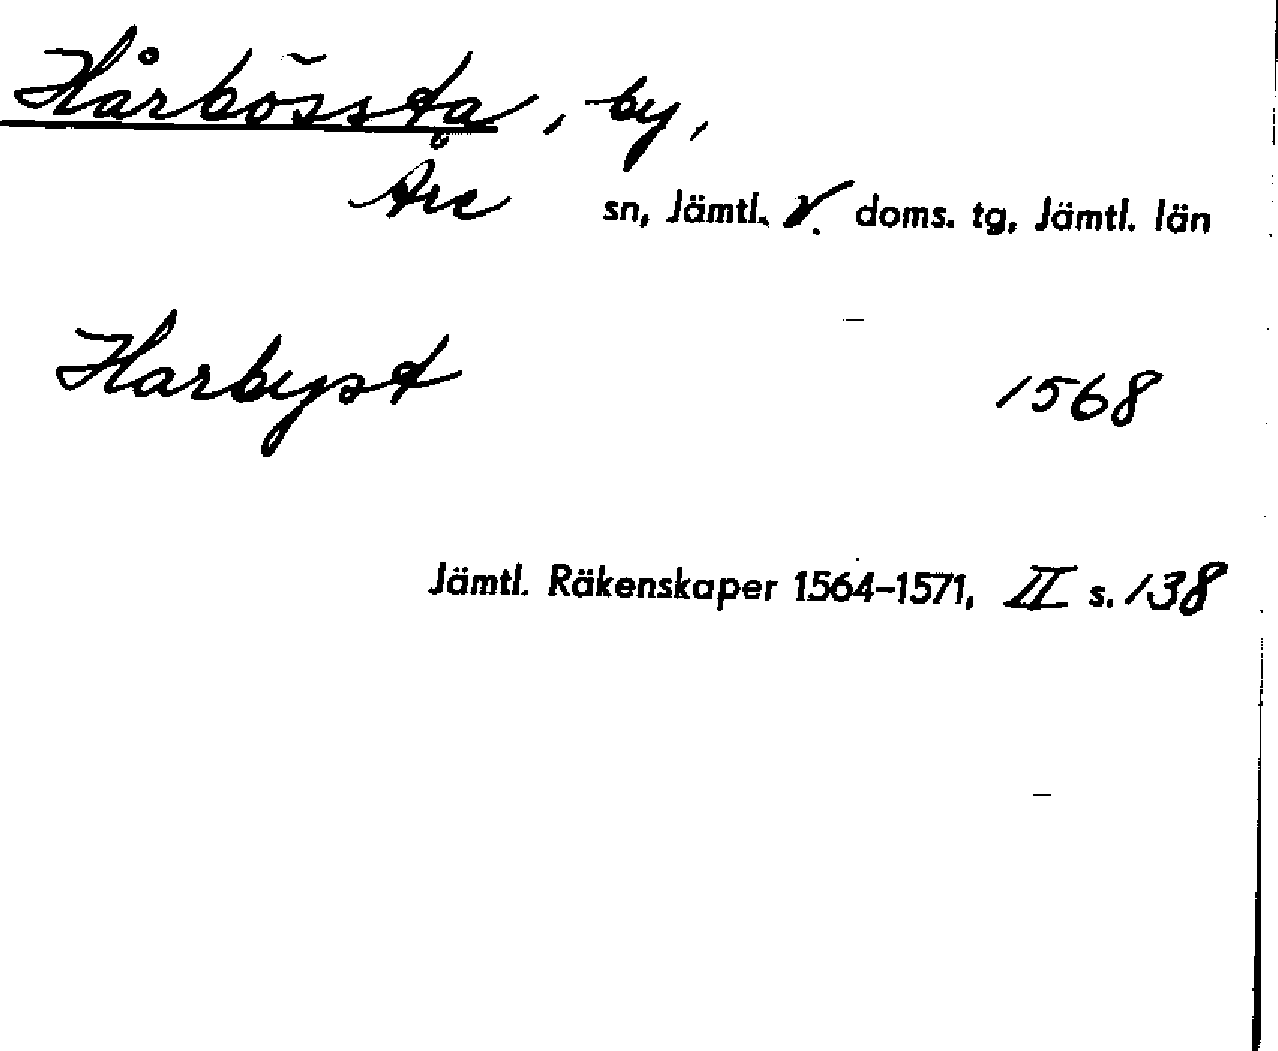 Hårbössta, by,
Åre sn, Jämtl. v. doms. tg, Jämtl. län
Harbyst 1568
Jämtl. Räkenskaper 1564–1571, II s. 138